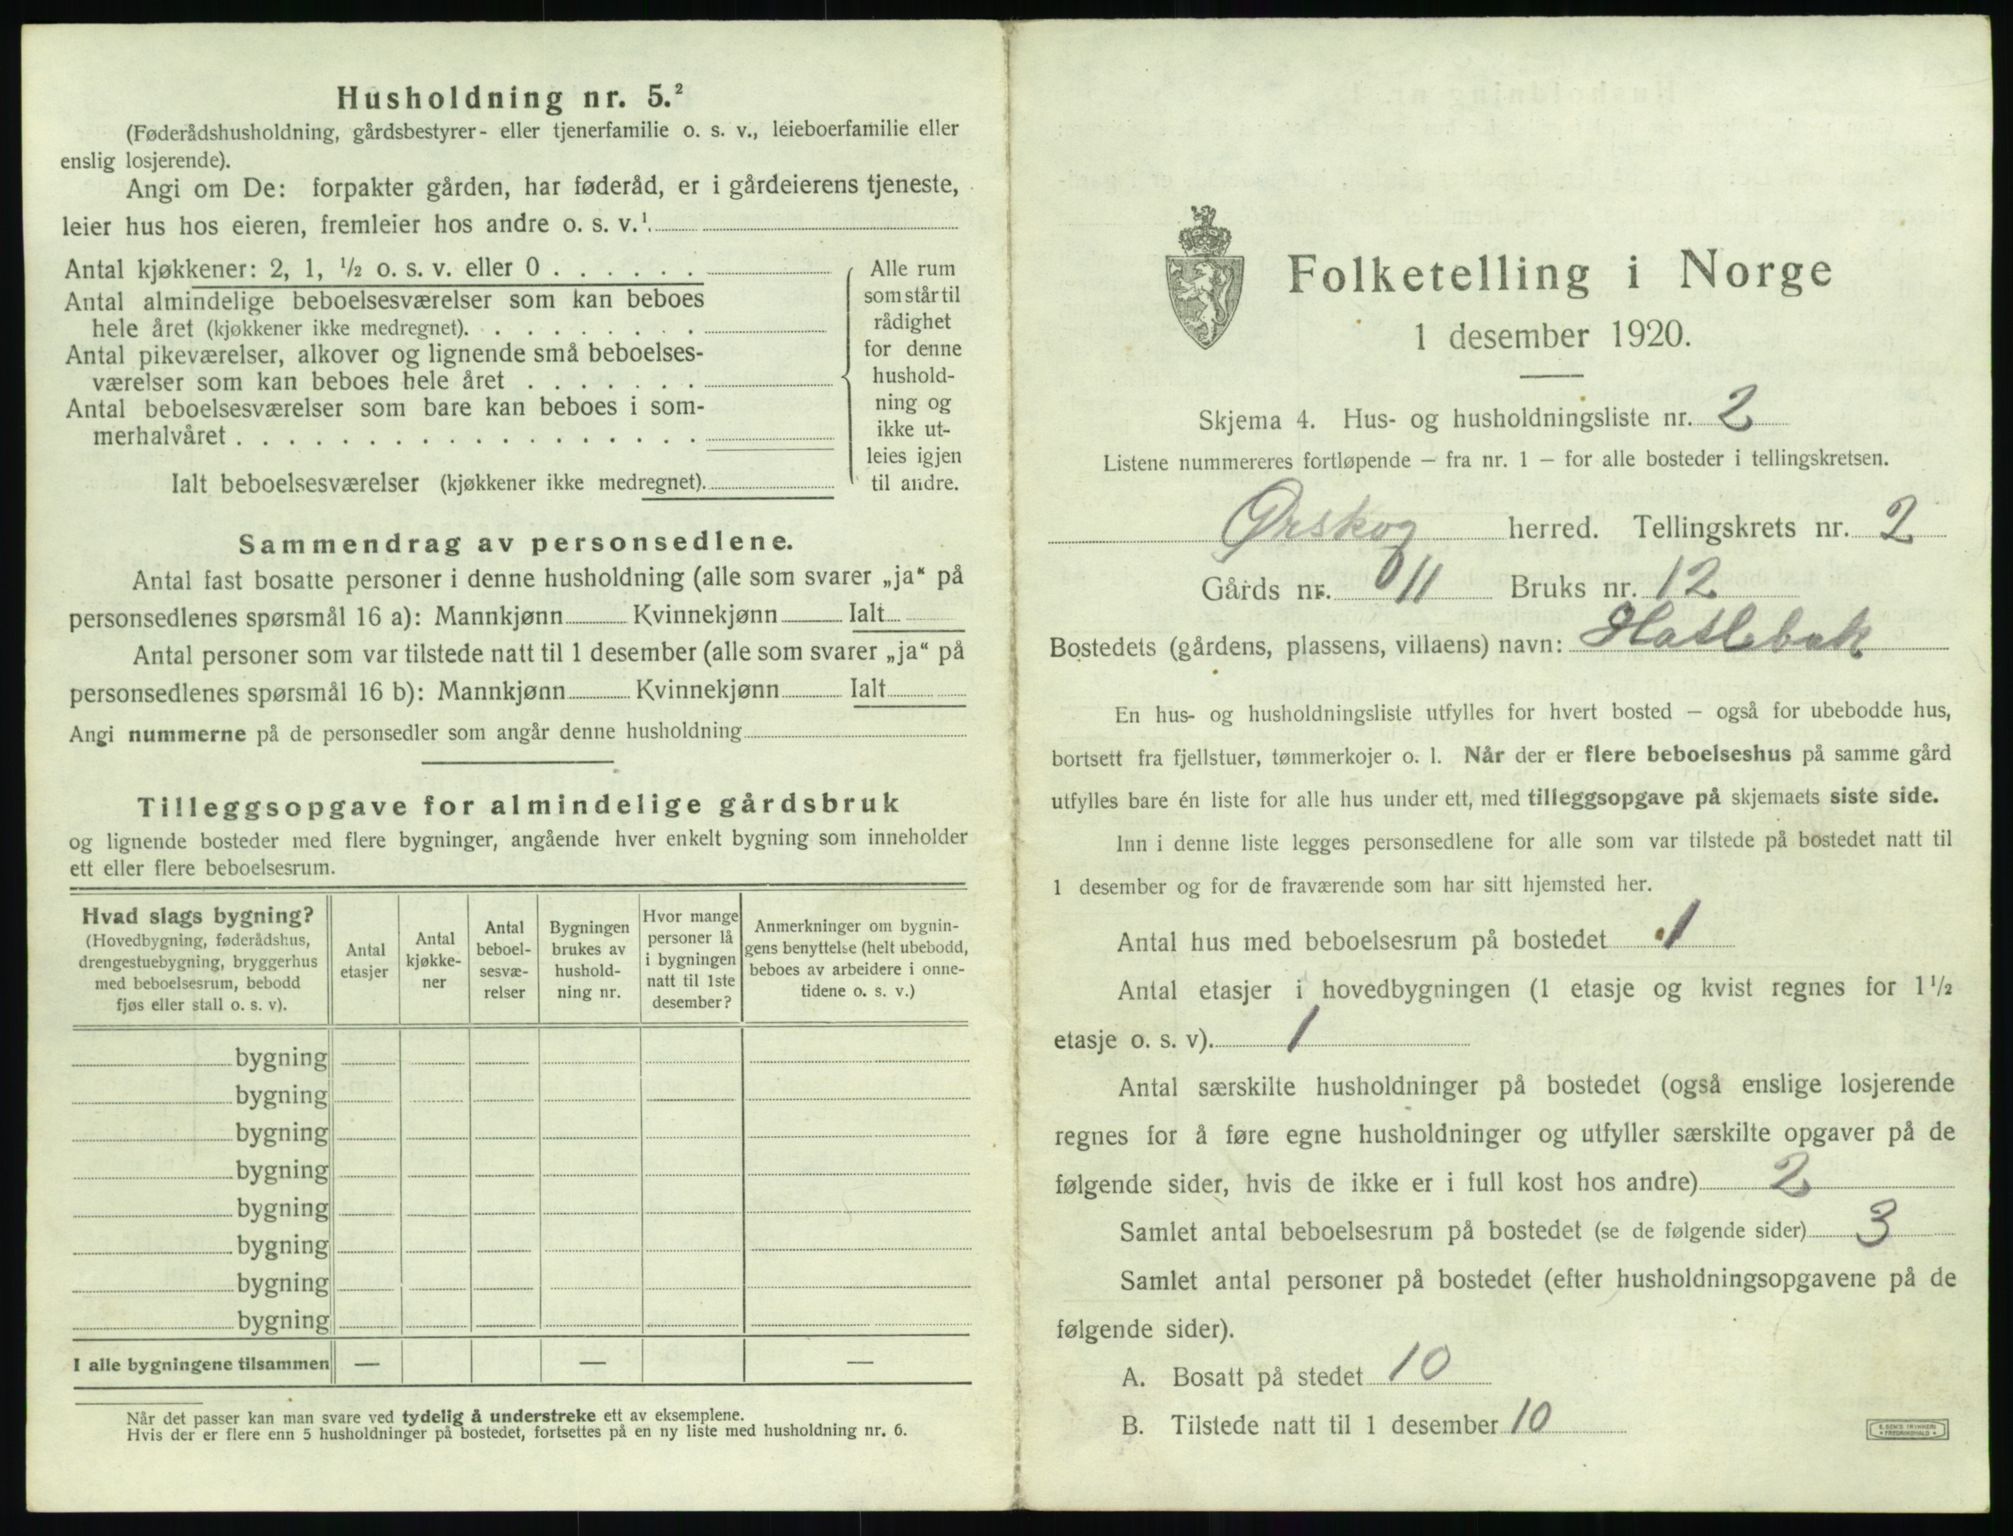 Husholdning nr. 5.²
(Føderådshusholdning, gårdsbestyrer- eller tjenerfamilie o. s. v., leieboerfamilie eller
enslig losjerende).
Angi om De: forpakter gården, har føderåd, er i gårdeierens tjeneste,
leier hus hos eieren, fremleier hos andre o. s. v.¹
Antal kjøkkener: 2, 1, ½ o. s. v. eller 0 . . . . . .
Antal almindelige beboelsesværelser som kan beboes
hele året (kjøkkener ikke medregnet). . . . . . . . .
Antal pikeværelser, alkover og lignende små beboelses-
værelser som kan beboes hele året . . . . . . .
Antal beboelsesværelser som bare kan beboes i som-
merhalvåret . . . . . . . . . . . . . . . . . .
Ialt beboelsesværelser (kjøkkener ikke medregnet).
Alle rum
som står til
rådighet
for denne
hushold-
ning og
ikke ut-
leies igjen
til andre.
Sammendrag av personsedlene.
Antal fast bosatte personer i denne husholdning (alle som svarer „ja“ på
personsedlenes spørsmål 16 a): Mannkjønn Kvinnekjønn Ialt
Antal personer som var tilstede natt til 1 desember (alle som svarer „ja“ på
personsedlenes spørsmål 16 b): Mannkjønn Kvinnekjønn Ialt
Angi nummerne på de personsedler som angår denne husholdning
Tilleggsopgave for almindelige gårdsbruk
og lignende bosteder med flere bygninger, angående hver enkelt bygning som inneholder
ett eller flere beboelsesrum.
Hvad slags bygning?
(Hovedbygning, føderådshus,
drengestuebygning, bryggerhus
med beboelsesrum, bebodd
fjøs eller stall o. s. v).
Antal
etasjer
Antal
kjøkke-
ner
Antal
beboel-
sesvæ-
relser
Bygningen
brukes av
hushold-
ning nr.
Hvor mange
personer lå
i bygningen
natt til 1ste
desember?
Anmerkninger om bygnin-
gens benyttelse (helt ubebodd,
beboes av arbeidere i onne-
tidene o. s. v.)
bygning
bygning
bygning
bygning
bygning
bygning
bygning
bygning
I alle bygningene tilsammen — — —
Når det passer kan man svare ved tydelig å understreke ett av eksemplene.
Hvis der er flere enn 5 husholdninger på bostedet, fortsettes på en ny liste med husholdning nr. 6.
Folketelling i Norge
1 desember 1920.
Skjema 4. Hus- og husholdningsliste nr. 2
Listene nummereres fortløpende — fra nr. 1 — for alle bosteder i tellingskretsen.
Ørskog herred. Tellingskrets nr. 2
Gårds nr. 11 Bruks nr. 12
Bostedets (gårdens, plassens, villaens) navn: Hatlebak
En hus- og husholdningsliste utfylles for hvert bosted — også for ubebodde hus,
bortsett fra fjellstuer, tømmerkojer o. l. Når der er flere beboelseshus på samme gård
utfylles bare én liste for alle hus under ett, med tilleggsopgave på skjemaets siste side.
Inn i denne liste legges personsedlene for alle som var tilstede på bostedet natt til
1 desember og for de fraværende som har sitt hjemsted her.
Antal hus med beboelsesrum på bostedet 1
Antal etasjer i hovedbygningen (1 etasje og kvist regnes for 1½
etasje o. s. v). 1
Antal særskilte husholdninger på bostedet (også enslige losjerende
regnes for å føre egne husholdninger og utfyller særskilte opgaver på de
følgende sider, hvis de ikke er i full kost hos andre) 2
Samlet antal beboelsesrum på bostedet (se de følgende sider) 3
Samlet antal personer på bostedet (efter husholdningsopgavene på de
følgende sider).
A. Bosatt på stedet 10
B. Tilstede natt til 1 desember 10